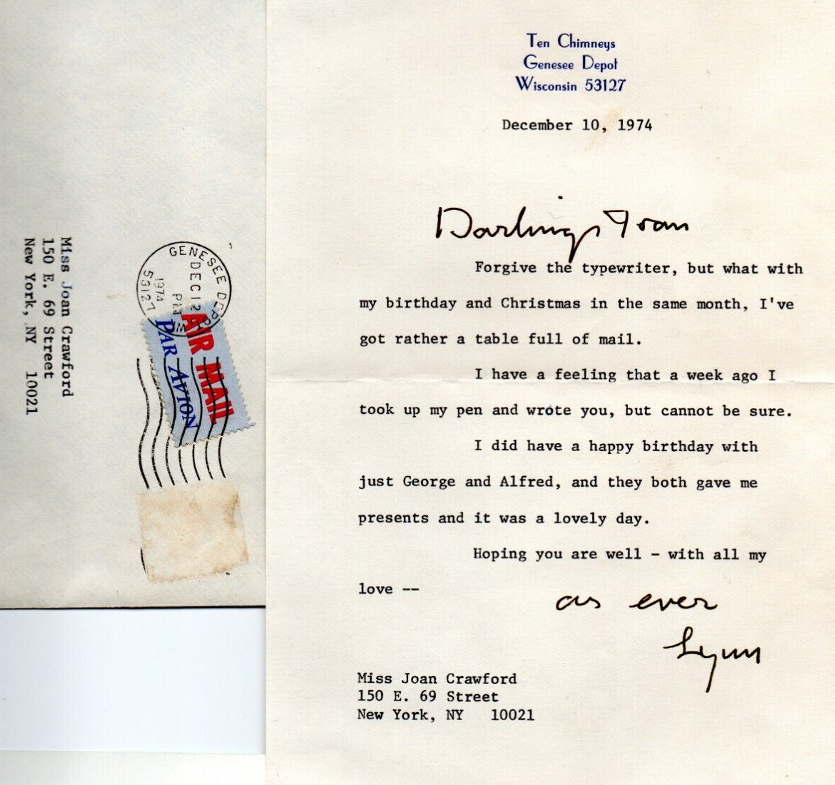 Ten Chimneys
Genesee Depot
Wisconsin 53127
December 10, 1974
Darling Joan
Forgive the typewriter, but what with
my birthday and Christmas in the same month, I've
got rather a table full of mail.
I have a feeling that a week ago I
took up my pen and wrote you, but cannot be sure.
I did have a happy birthday with
just George and Alfred, and they both gave me
presents and it was a lovely day.
Hoping you are well - with all my
love --
as ever
Lynn
Miss Joan Crawford
150 E. 69 Street
New York, NY 10021
Miss Joan Crawford
150 E. 69 Street
New York, NY 10021
GENESEE DEPO
DEC 12
PM
1974
53127
AIR MAIL
PAR AVION